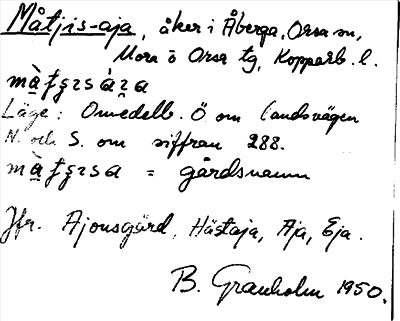 Måtjis-aja, åker i Åberga, Orsa sn,
Mora o Orsa tg, Kopparb. l.
Läge: Omedelb. Ö om landsvägen
N. och S. om siffran 288.
= gårdsnamn
Jfr. Ajonsgård, Hästaja, Aja, Eja.
B. Granholm 1950.